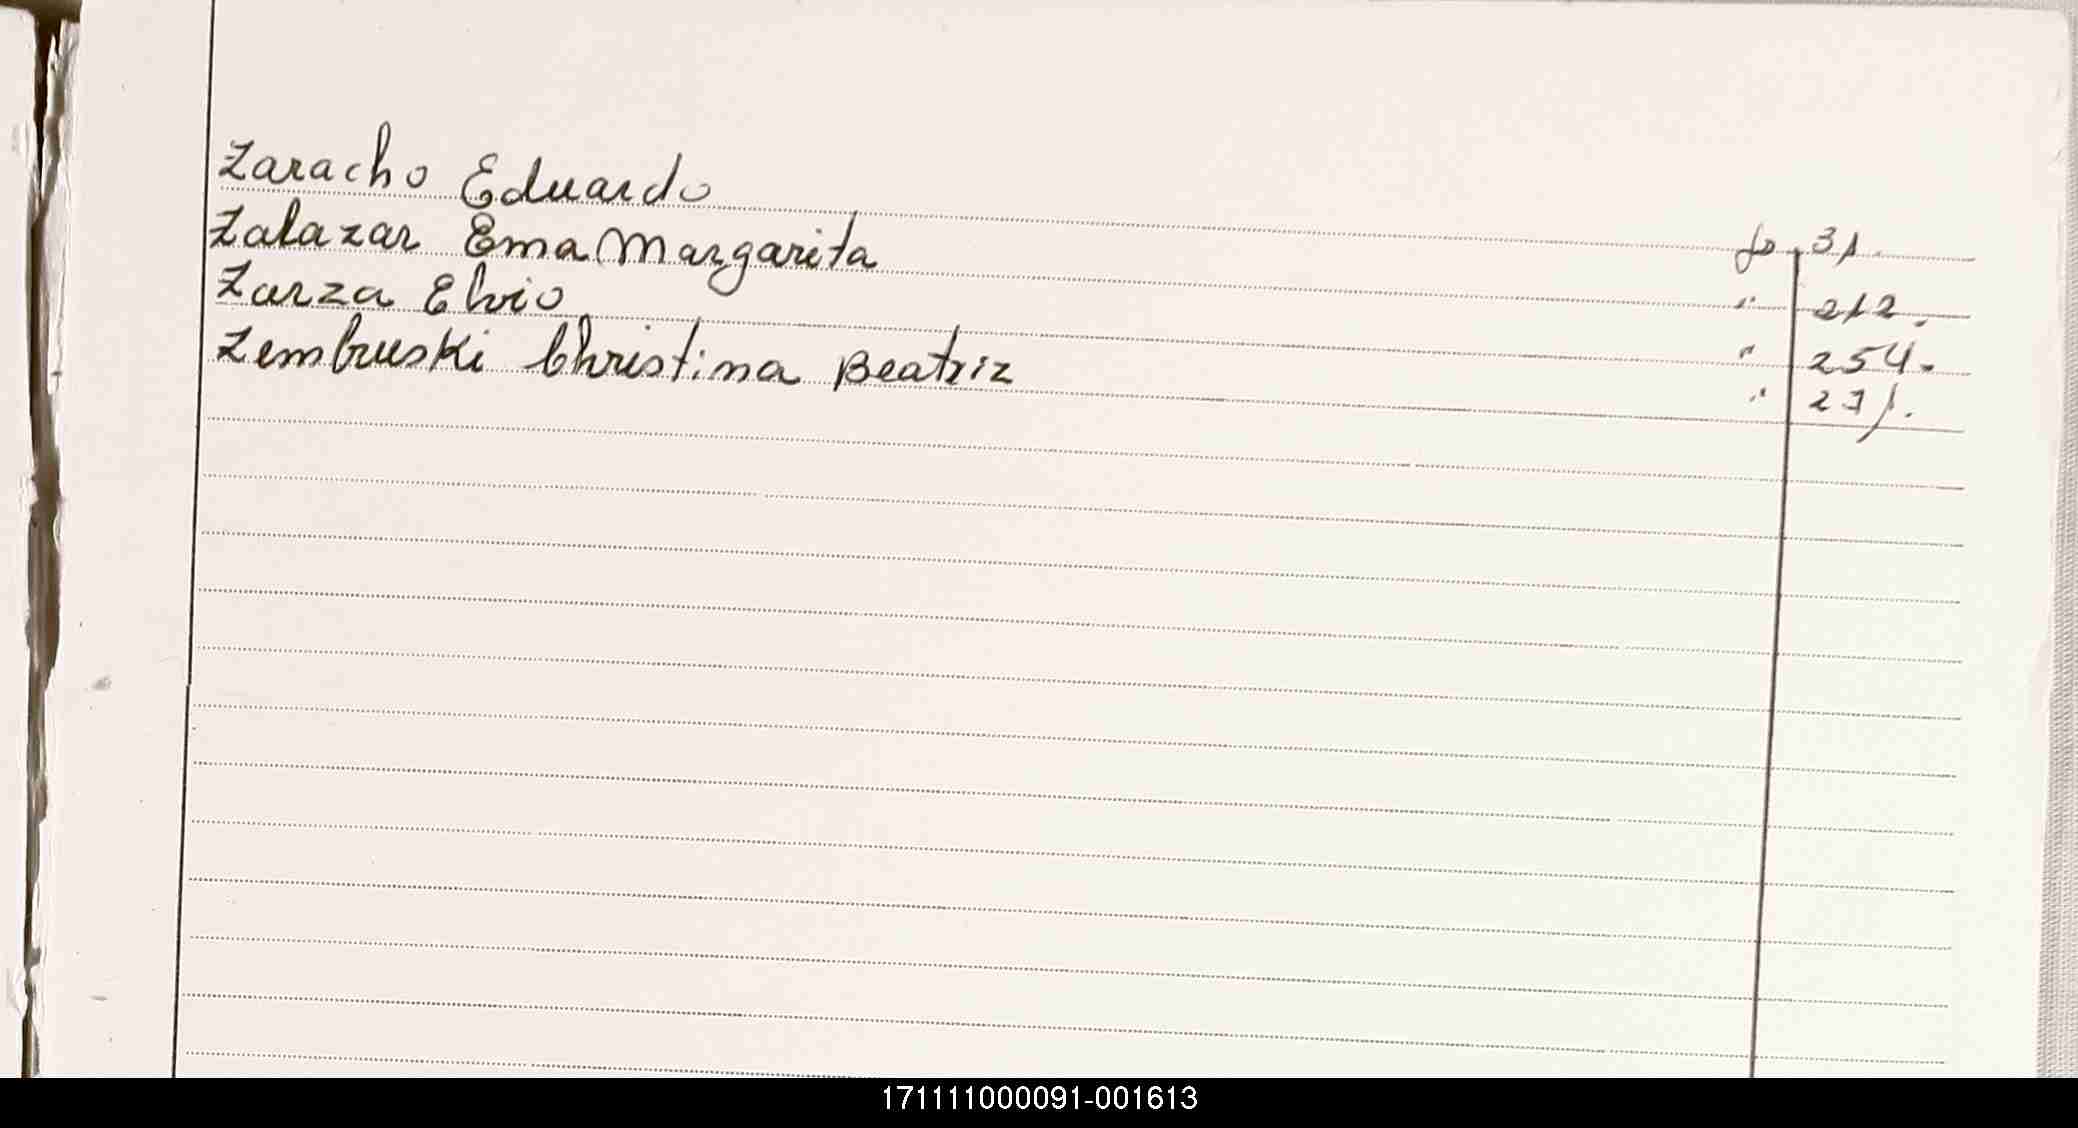 Zaracho Eduardo fo 31.
Zalazar Ema Margarita " 212.
Zarza Elvio " 254.
Zembruski Christina Beatriz " 271.
171111000091-001613